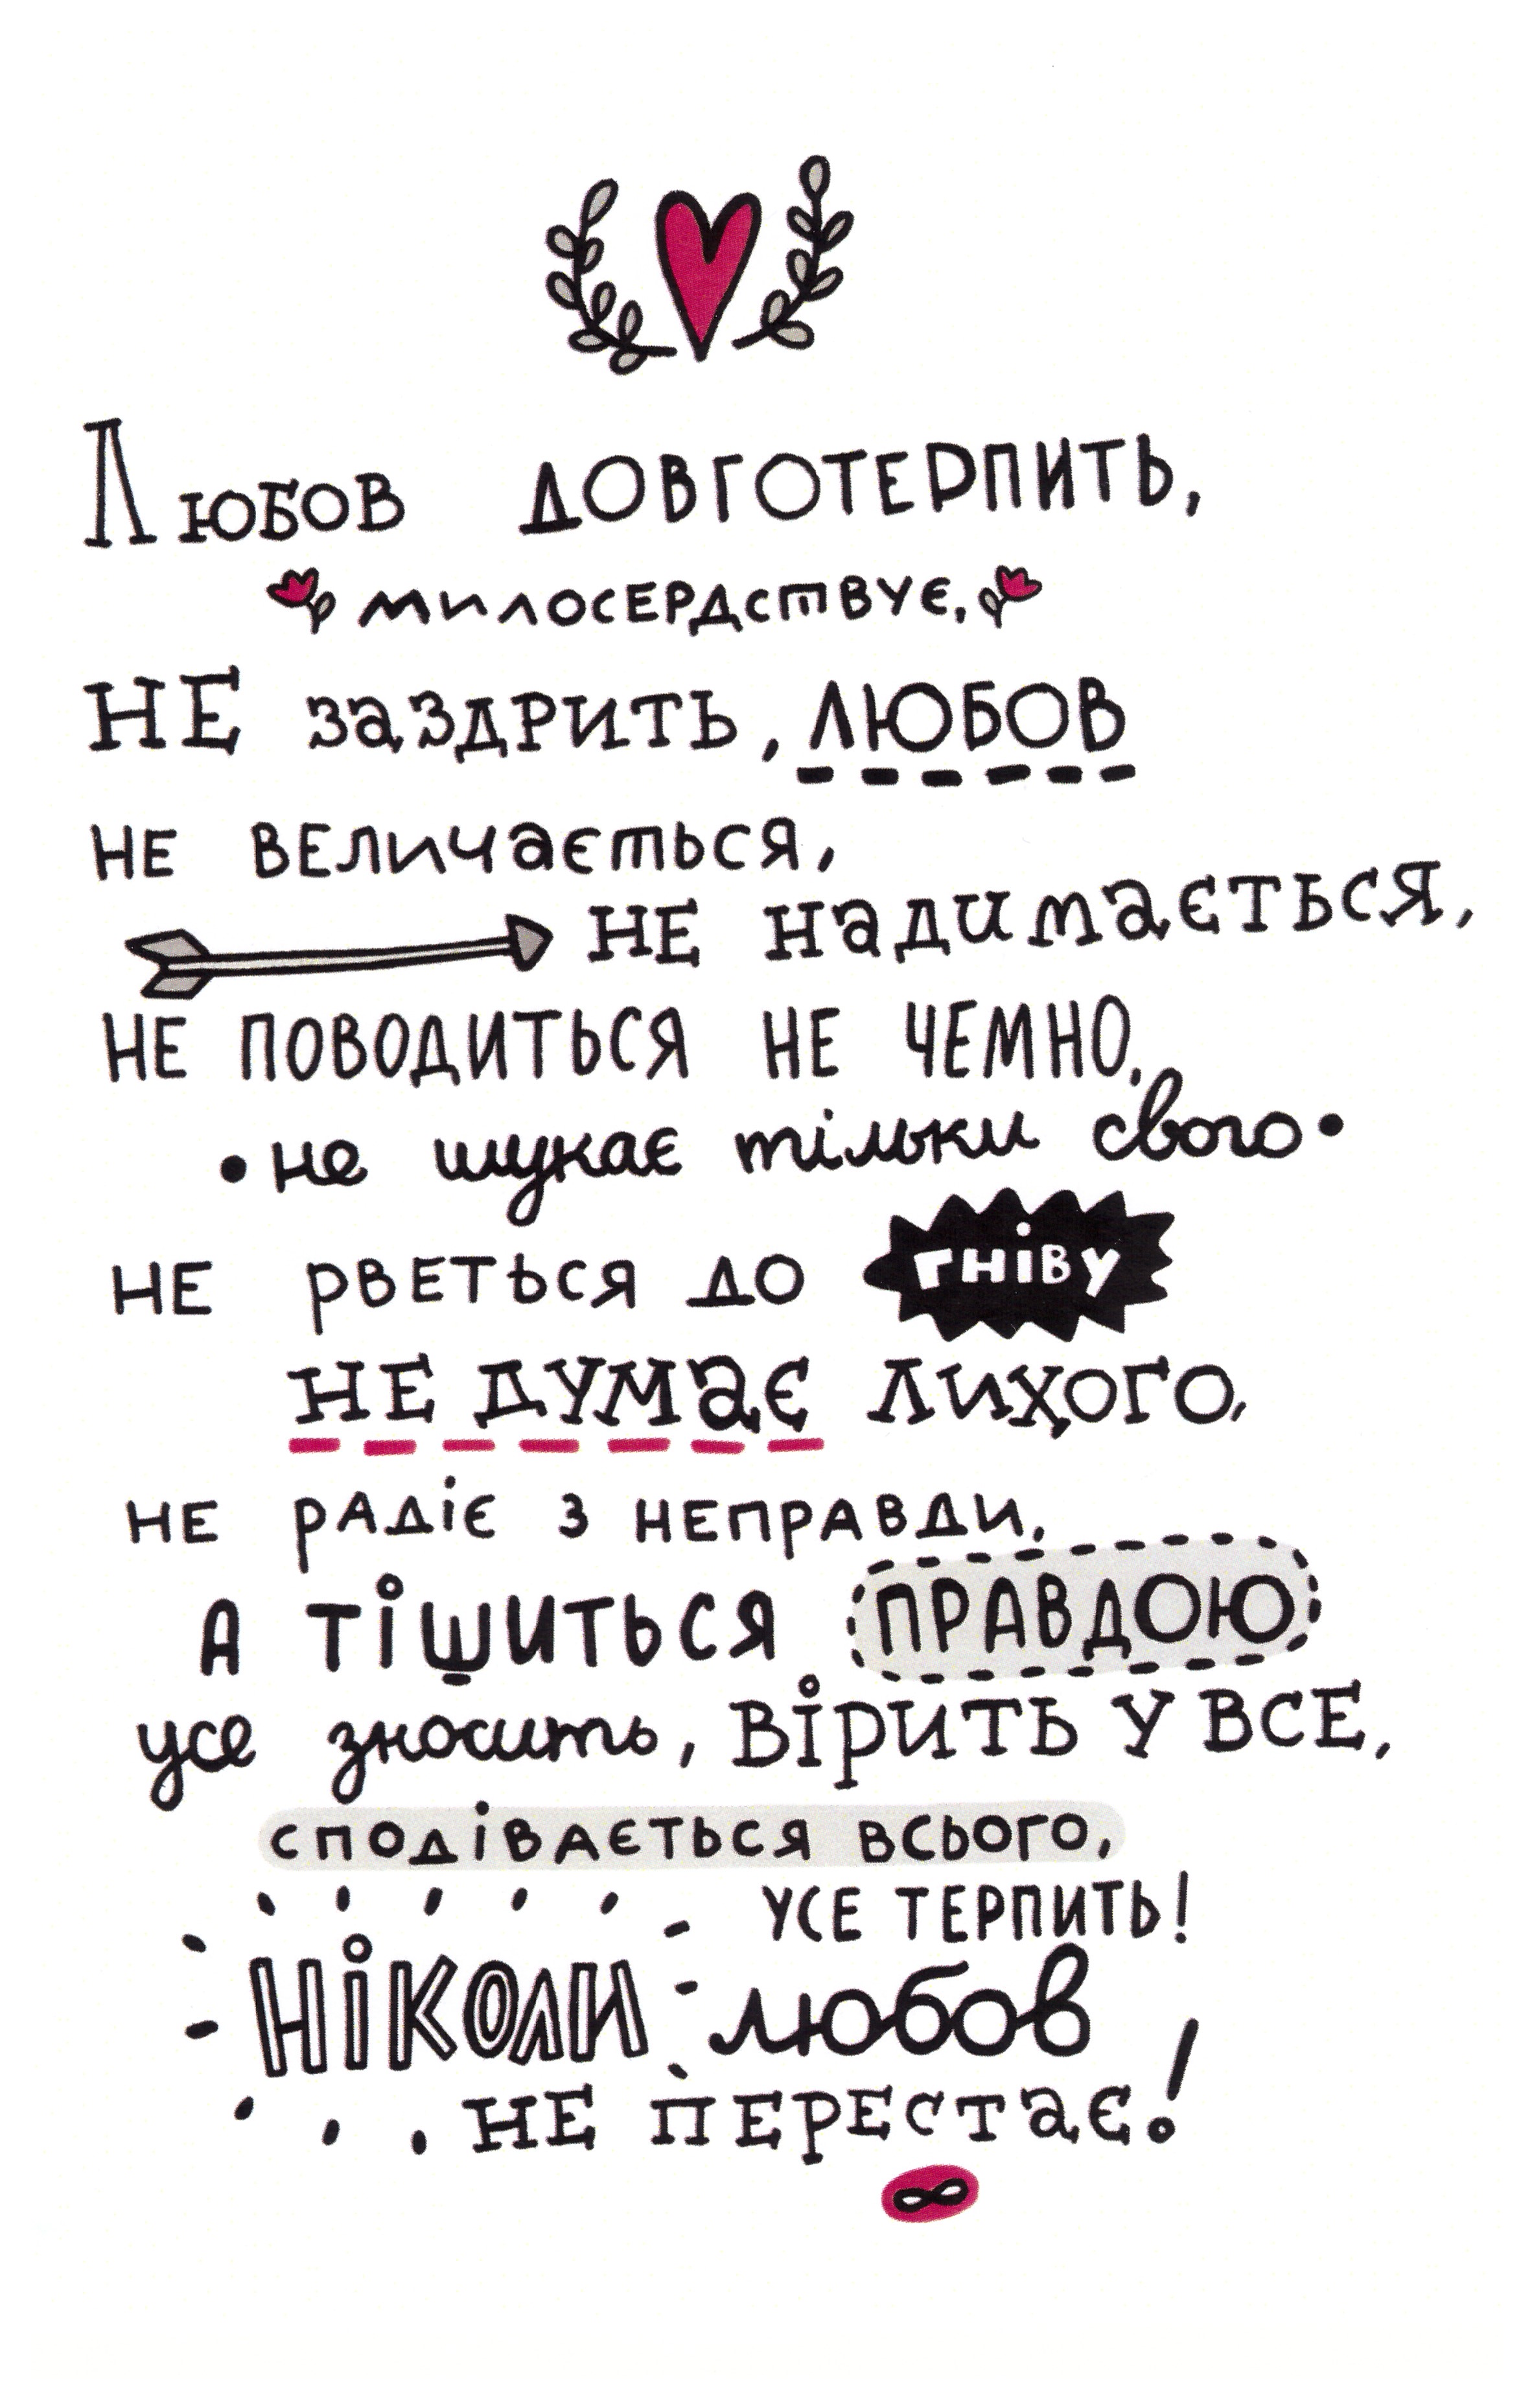 Любов довготерпить,
милосердствує,
не заздрить, любов
не величається,
не надимається,
не поводиться не чемно,
•не шукає тільки свого•
не рветься до гніву
не думає лихого,
не радіє з неправди,
а тішиться правдою,
усе зносить, вірить у все,
сподівається всього,
усе терпить!
Ніколи любов
не перестає!